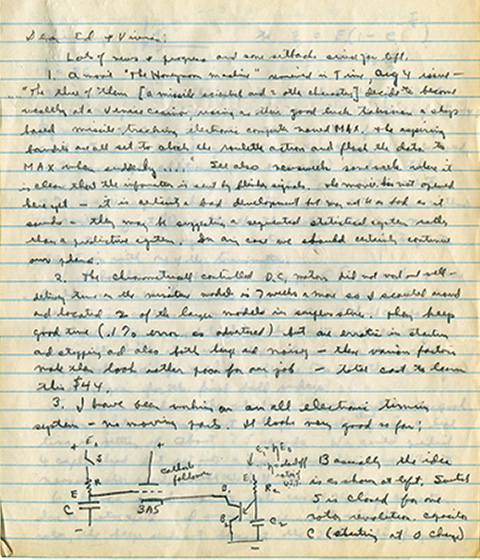 Dear Ed & Vivian:
Lots of news & progress and some setbacks since you left.
1. A movie "The Honeymoon Machine" reviewed in Time, Aug 4 issue —
"The three of them [a missile scientist and 2 other characters] decide to become
wealthy at a Venice casino using as their good luck talisman a ships
based missile-tracking electronic computer named MAX. The aspiring
bandits are all set to clock the roulette action and flash the data to
MAX when suddenly ...." See also newsweek same week where it
is clear that the information is sent by blinker signals. The movie has not opened
here yet — it is certainly a bad development but may not be as bad as it
sounds — they may be suggesting a sequential statistical system rather
than a predictive system. In any case we should certainly continue
our plans.
2. The chronometrically controlled D.C. motors did not work out well —
delivery time on the miniature models is 7 weeks or more so I scouted around
and located 2 of the larger models in surplus stores. They keep
good time (.1% error as advertised) but are erratic in starting
and stopping and also both large and noisy — these various factors
make them look rather poor for our job — total cost to learn
this $44.
3. I have been working on an all electronic timing
system — no moving parts. It looks very good so far:
+ E₀
S
R
E
C
+
cathode
follower
3A5
E₁ = ηE₀
E₁
R₂
B₁
B₂
C₂
Basically the idea
is as shown at left. Switch
S is closed for one
rotor revolution. capacitor
C (starting at 0 charge)